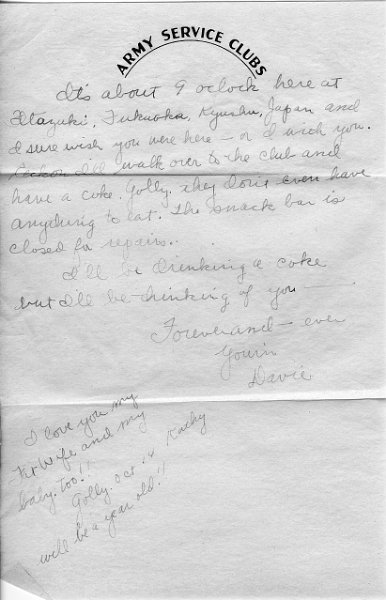 ARMY SERVICE CLUBS
It's about 9 oclock here at
Itazuki, Fukuoka, Kyushu, Japan and
I sure wish you were here - or I wish you.
Reckon I'll walk over to the club and
have a coke. Golly, they don't even have
anything to eat. The snack bar is
closed for repairs.
I'll be drinking a coke
but I'll be thinking of you —
Forever and - ever
Your'n
Davie
I love you my
Fat Wife and my
baby, too!!
Golly, Oct. 14 Kathy
will be a year old!!